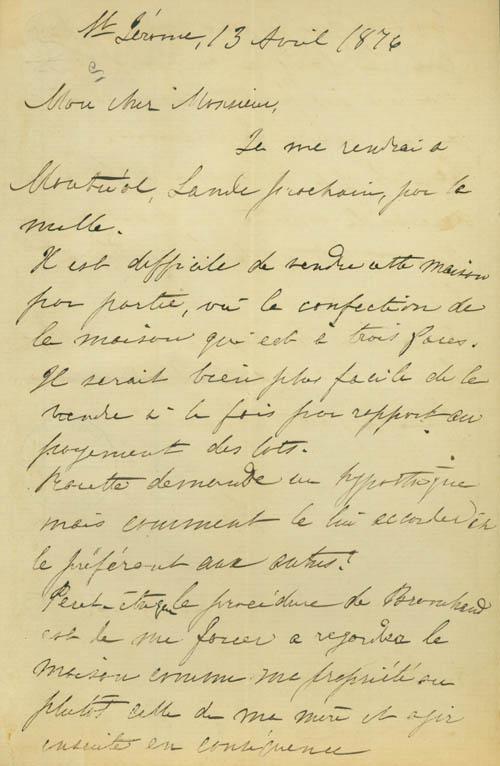 St Jérome, 13 Avril 1876
Mon cher Monsieur,
Je me rendrai a
Montréal, Lundi prochain, par la
malle.
Il est difficile de vendre cette maison
par partie, vû la confection de
la maison qui est à trois faces.
Il serait bien plus facile de la
vendre à la fois par rapport au
payement des lots.
demande un hypothèque
mais comment le lui accorder en
le préférant aux autres!
Peut-être que le procédure de
est de me forcer a regarder la
maison comme ma propriété ou
plutôt celle de ma mère et agir
ensuite en conséquence